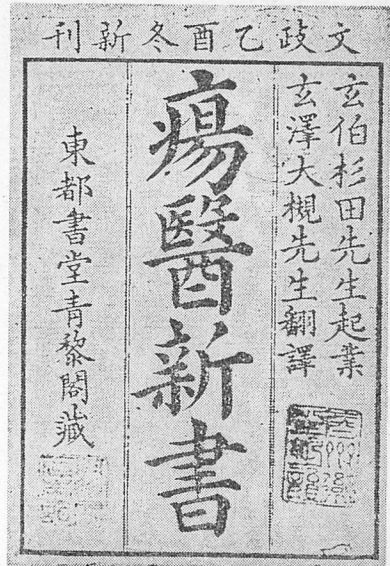 文政乙酉冬新刊
玄伯杉田先生起業
玄澤大槻先生翻譯
瘍醫新書
東都書堂青黎閣藏